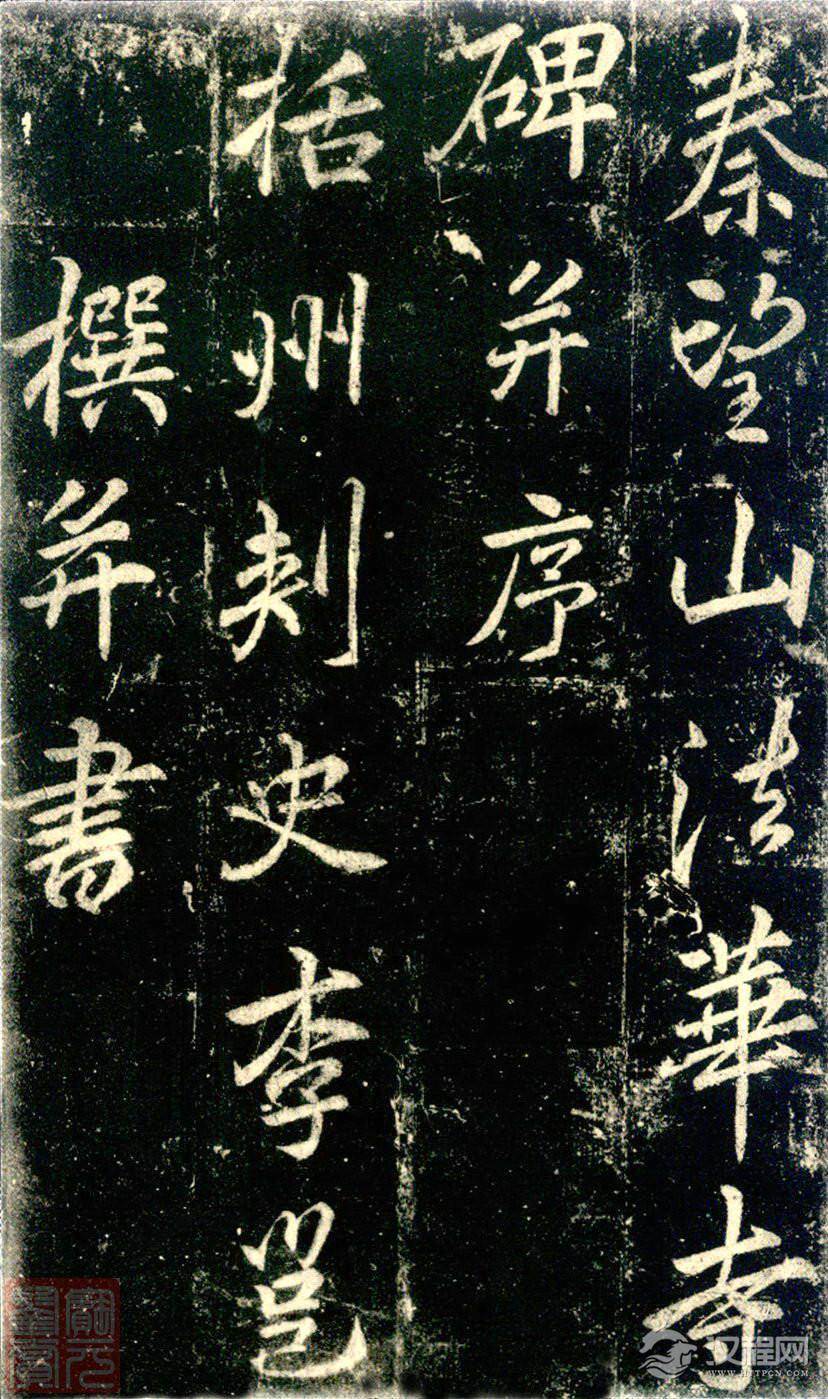 秦望山法華寺
碑并序
括州刺史李邕
撰并書
汉程网
WWW.HTTPCN.COM